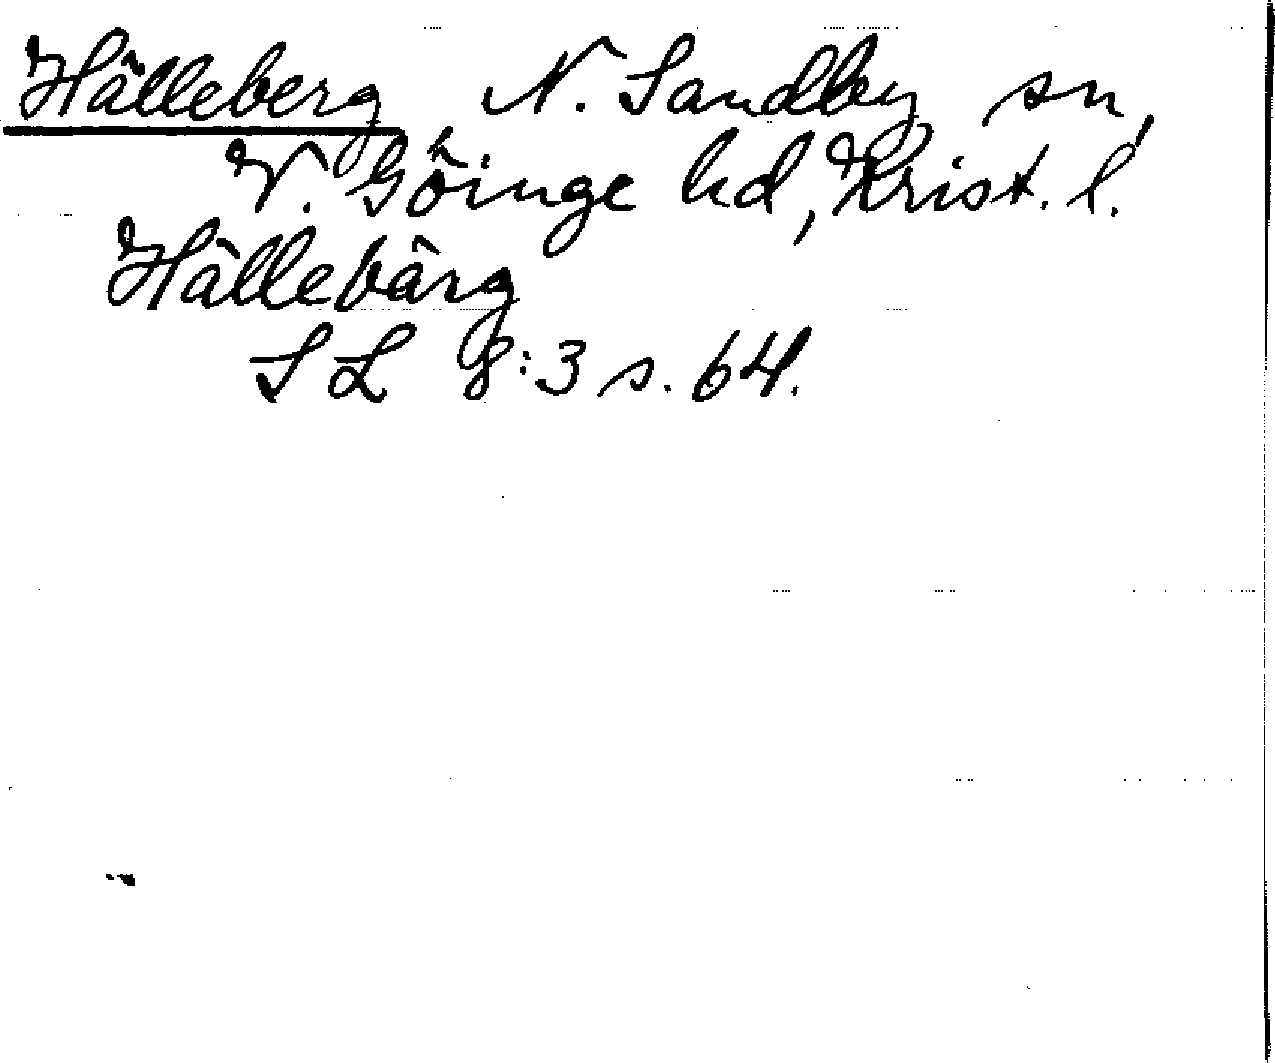 Hälleberg N. Sandby sn,
V. Göinge hd, Krist. l.
Hällebärg
SL 8:3 s. 64.